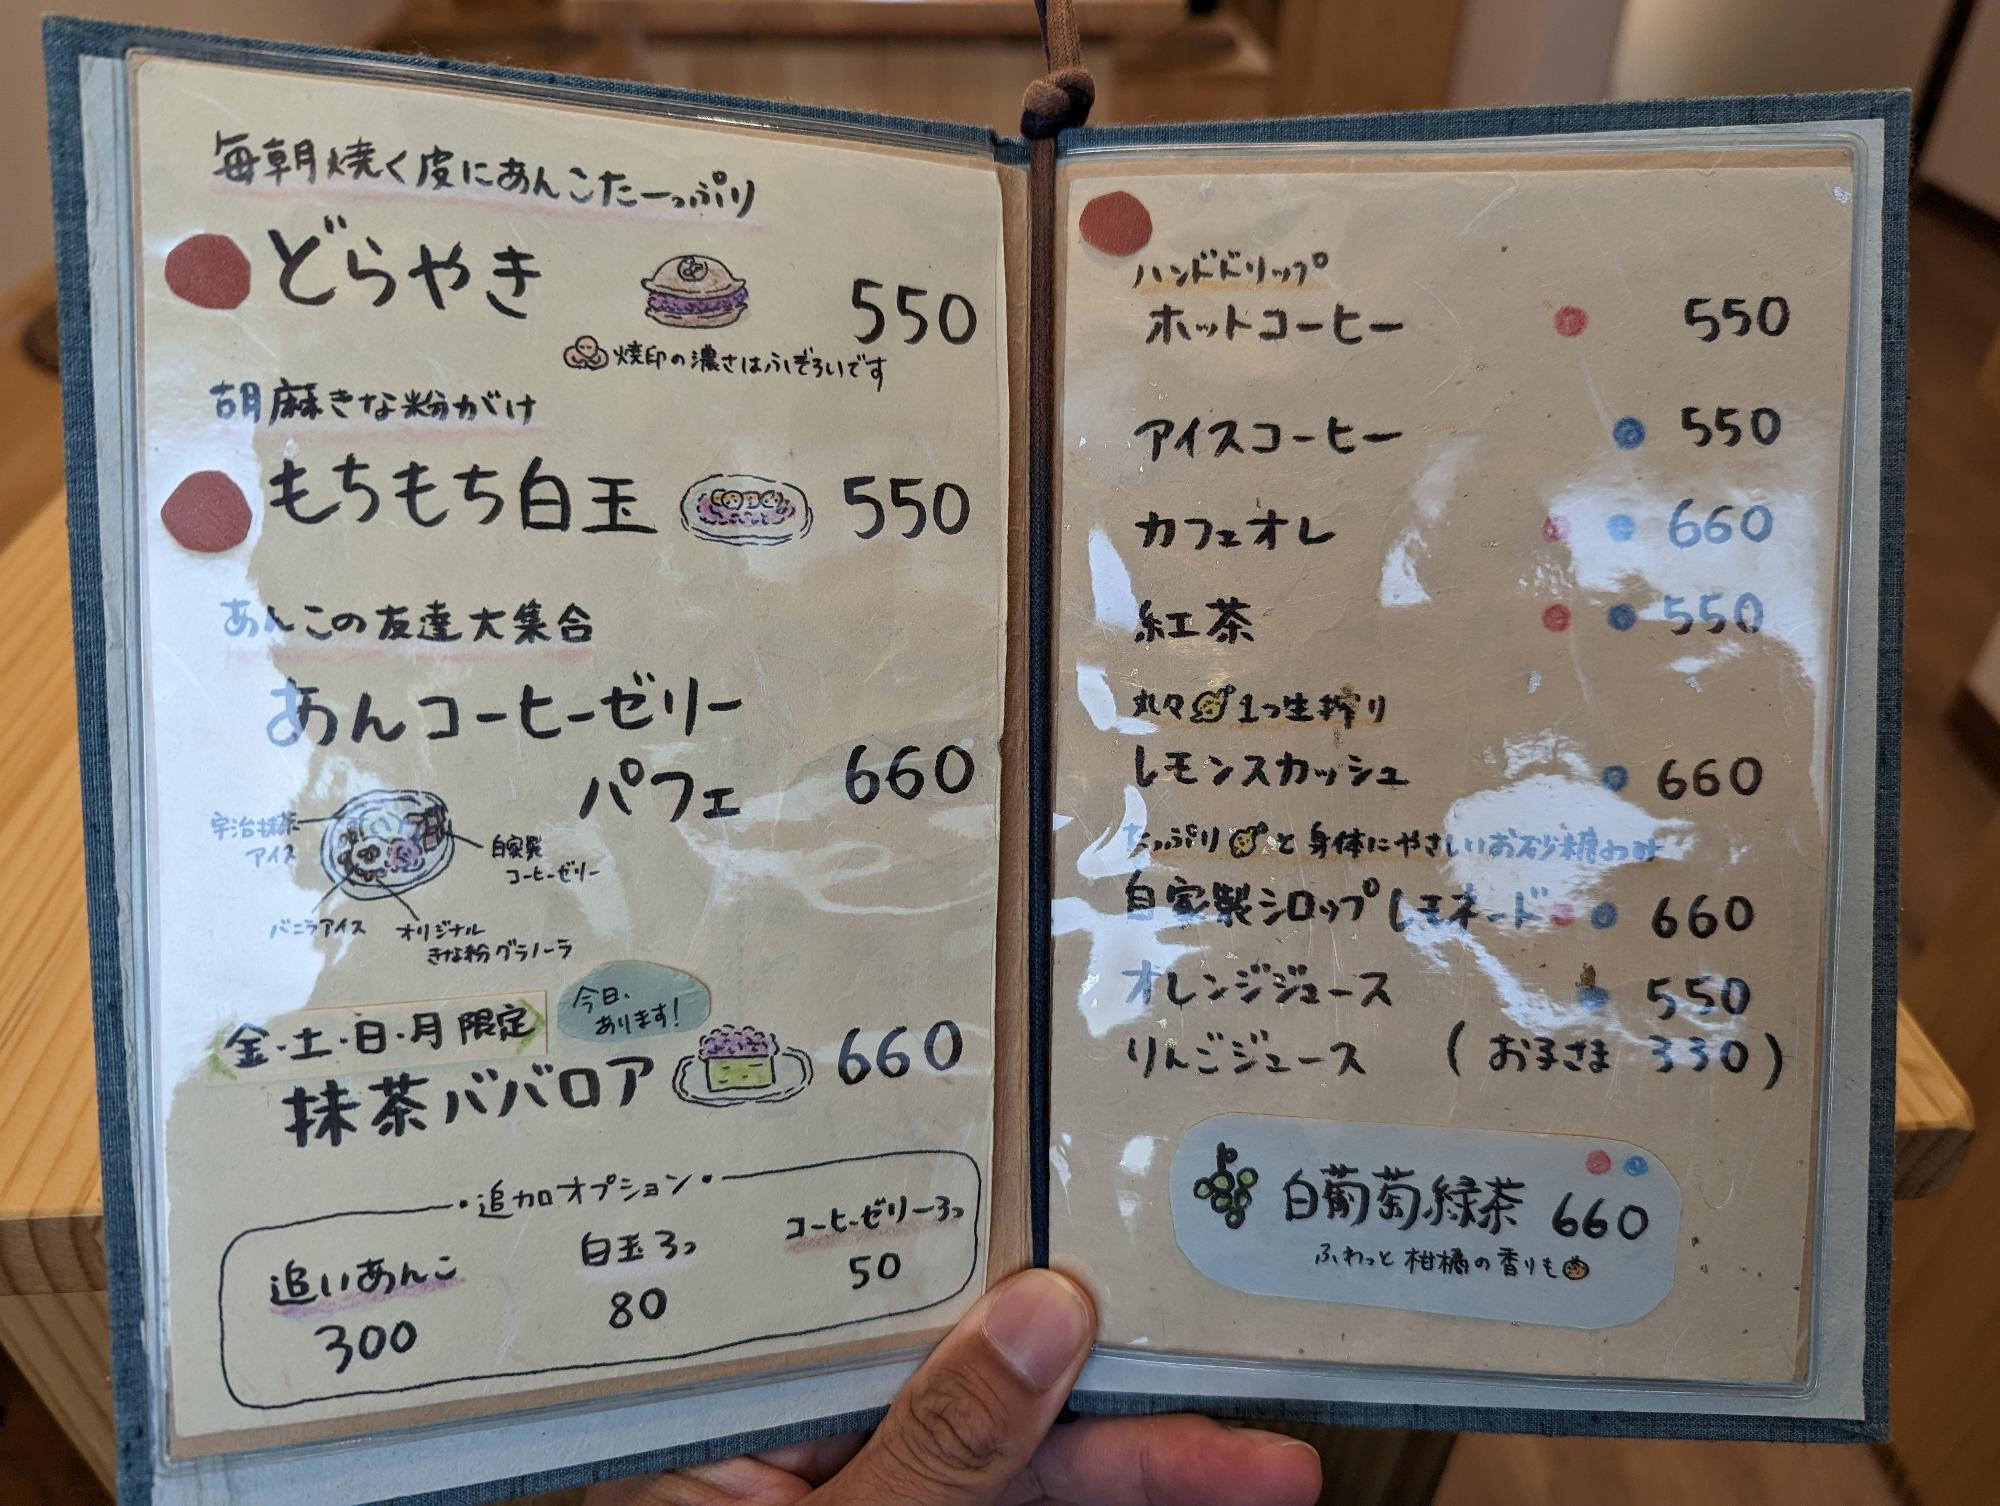 毎朝焼く皮にあんこたーっぷり
どらやき 550
焼印の濃さはふぞろいです
胡麻きな粉がけ
もちもち白玉 550
あんこの友達大集合
あんコーヒーゼリー
パフェ 660
宇治抹茶
アイス
自家製
コーヒーゼリー
バニラアイス
オリジナル
きな粉グラノーラ
金・土・日・月 限定
今日、
あります!
抹茶ババロア 660
・追加オプション・
追いあんこ
300
白玉3つ
80
コーヒーゼリー3つ
50
ハンドドリップ
ホットコーヒー 550
アイスコーヒー 550
カフェオレ 660
紅茶 550
丸々1つ生搾り
レモンスカッシュ 660
たっぷりと身体にやさしいお砂糖のみ
自家製シロップレモネード 660
オレンジジュース 550
りんごジュース (お子さま 330)
白葡萄緑茶 660
ふわっと柑橘の香りも